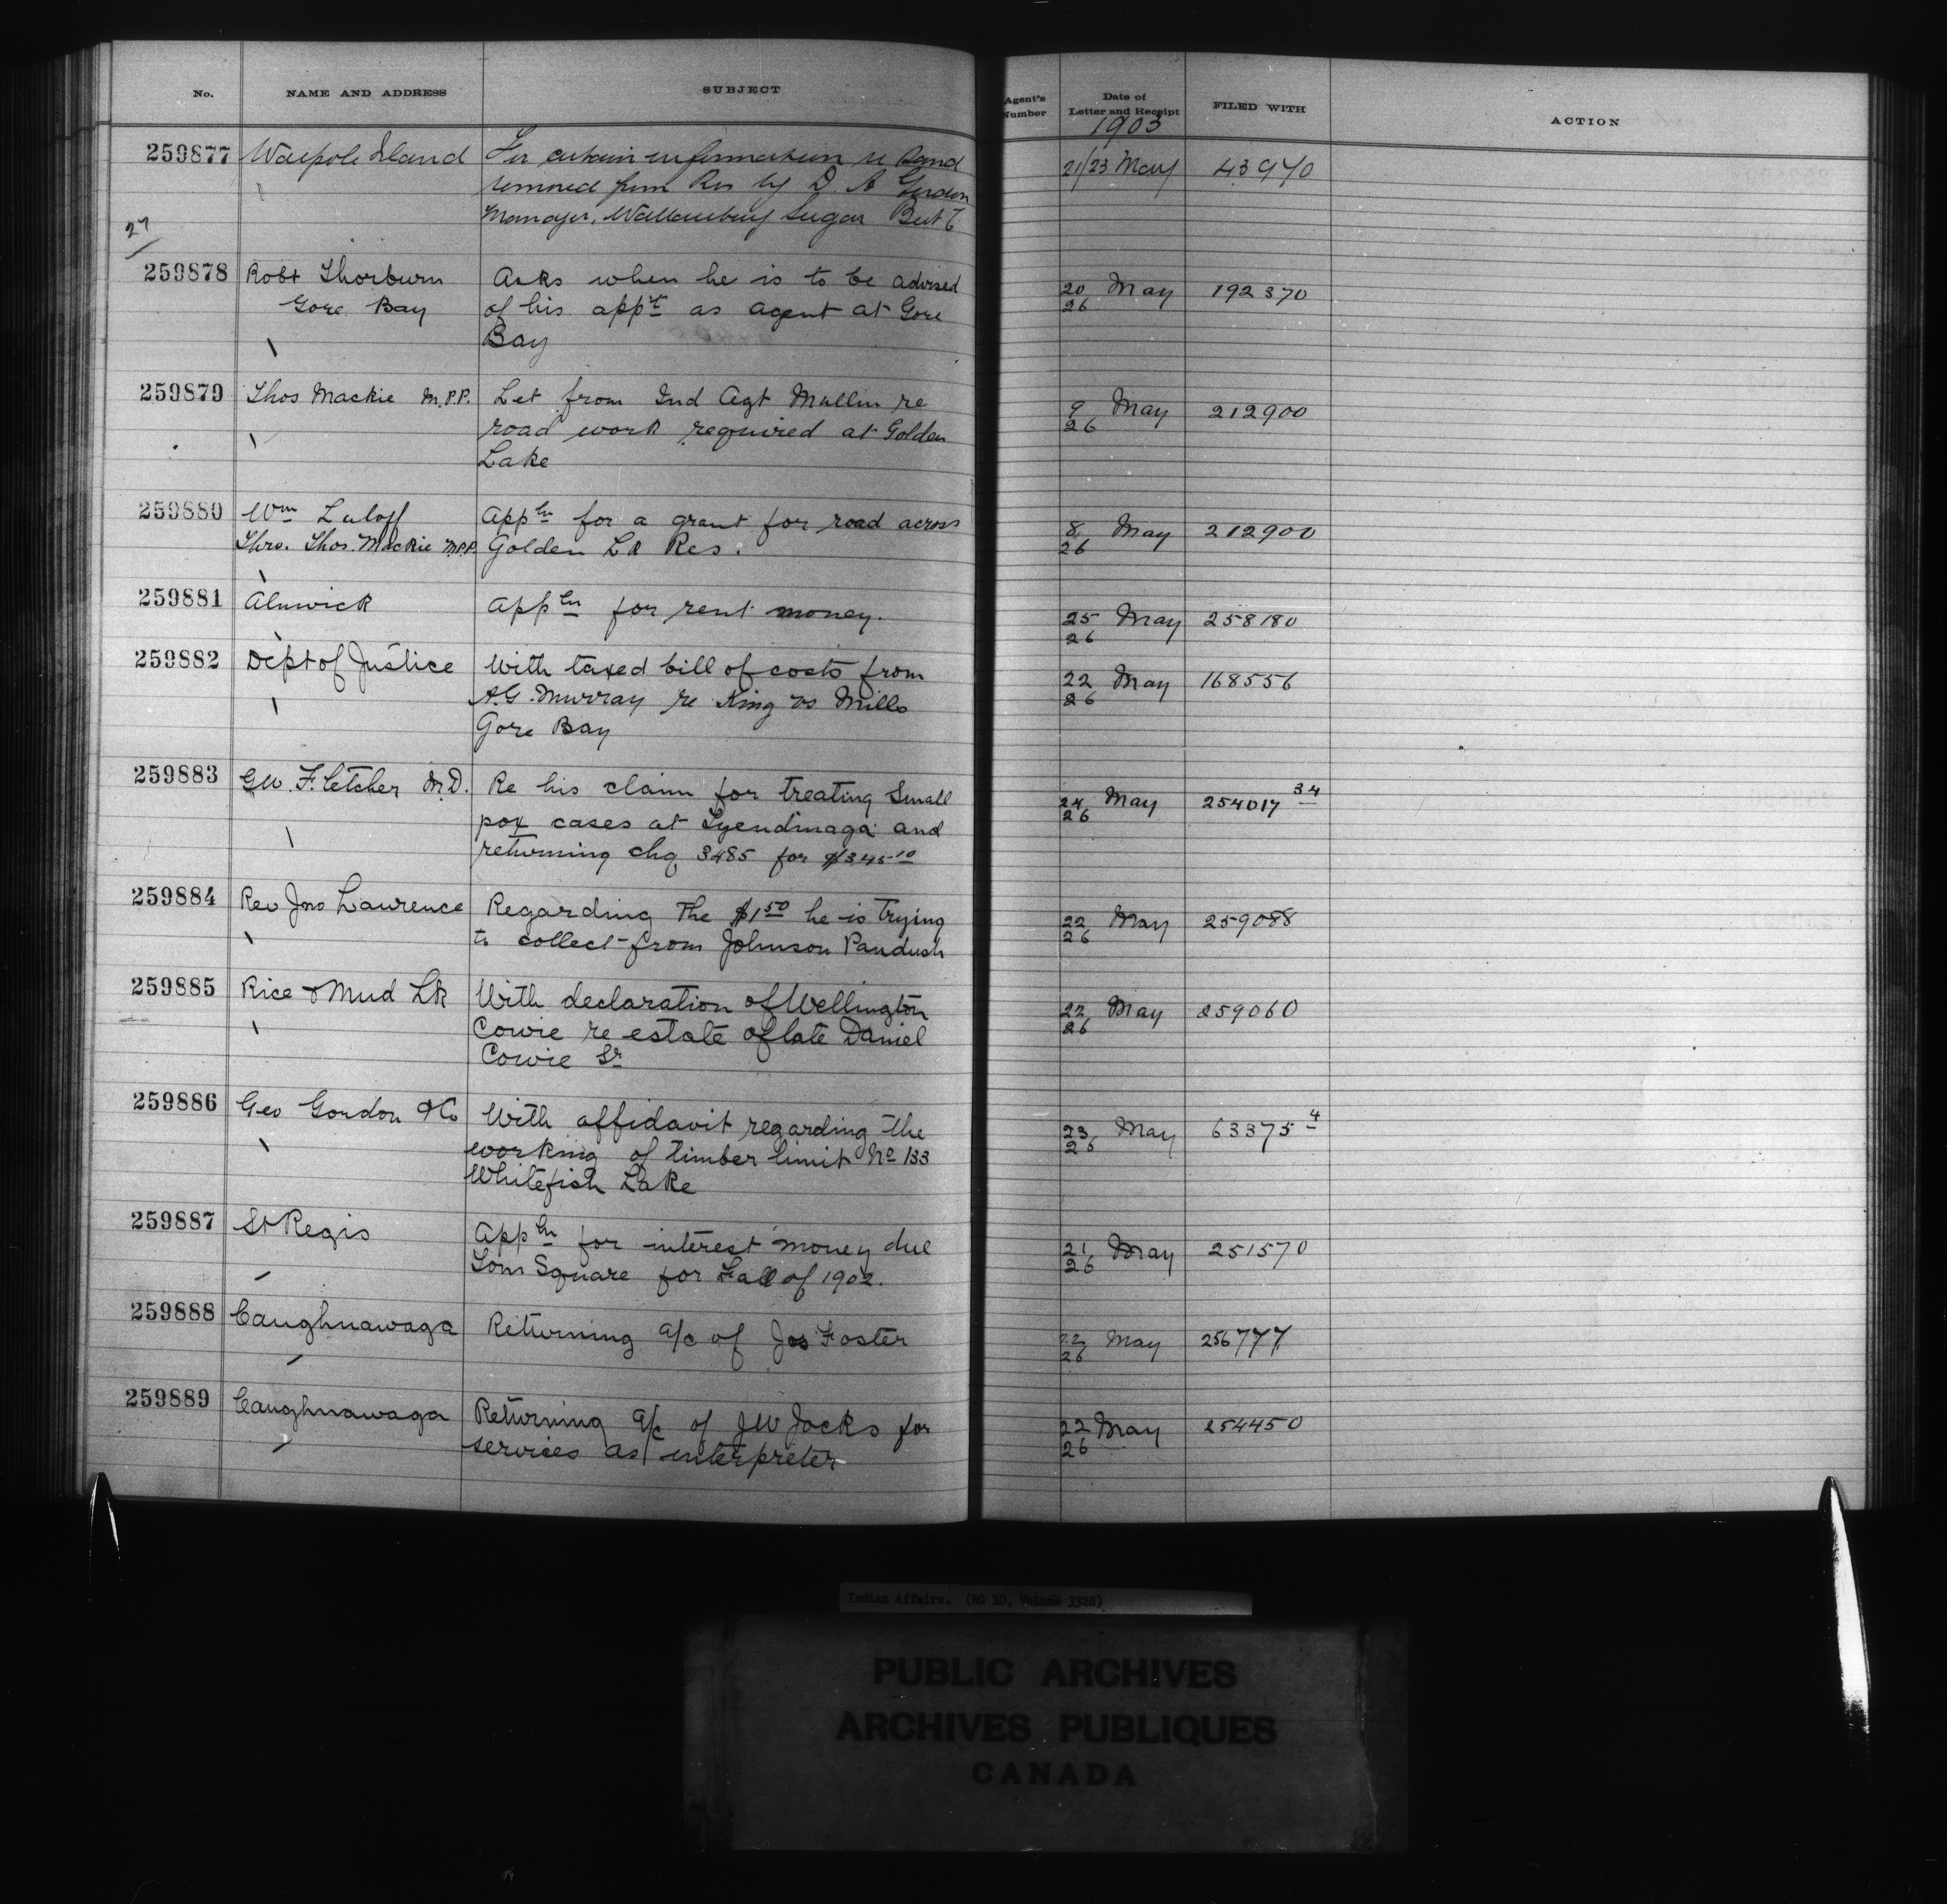 No. NAME AND ADDRESS SUBJECT Agent's Number Date of Letter and Receipt FILED WITH ACTION
1903
259877 Walpole Island For certain information re Sand 21/23 May 43970
removed from Res by D A Gordon
Manager, Wallaceburg Sugar Beet
27
259878 Robt Thorburn Asks when he is to be advised 20/26 May 192370
Gore Bay of his appt as agent at Gore
Bay
259879 Thos Mackie M.P.P. Let from Ind Agt Mullin re 9/26 May 212900
road work required at Golden
Lake
259880 Wm Luloff Appln for a grant for road across 8/26 May 212900
Thro. Thos. Mackie M.P.P. Golden Lk Res.
259881 Alnwick Appln for rent money. 25/26 May 258180
259882 Dept of Justice With taxed bill of costs from 22/26 May 168556
A.G. Murray re King vs Mills
Gore Bay
259883 Geo. Fletcher M.D. Re his claim for treating Small 24/26 May 254017 34
pox cases at Tyendinaga and
returning chq 3485 for $345 10
259884 Rev Jno Lawrence Regarding the $1 50 he is trying 22/26 May 259088
to collect from Johnson Paudush
259885 Rice & Mud Lk With declaration of Wellington 22/26 May 259060
Cowie re estate of late Daniel
Cowie Sr
259886 Geo Gordon & Co With affidavit regarding the 23/26 May 63375 4
working of timber limit No 133
Whitefish Lake
259887 St Regis Appln for interest money due 21/26 May 251570
Tom Square for Fall of 1902.
259888 Caughnawaga Returning a/c of Jos Foster 22/26 May 256777
259889 Caughnawaga Returning a/c of J W Jocks for 22/26 May 254450
services as interpreter
Indian Affairs. (RG 10, Volume 3328)
PUBLIC ARCHIVES
ARCHIVES PUBLIQUES
CANADA